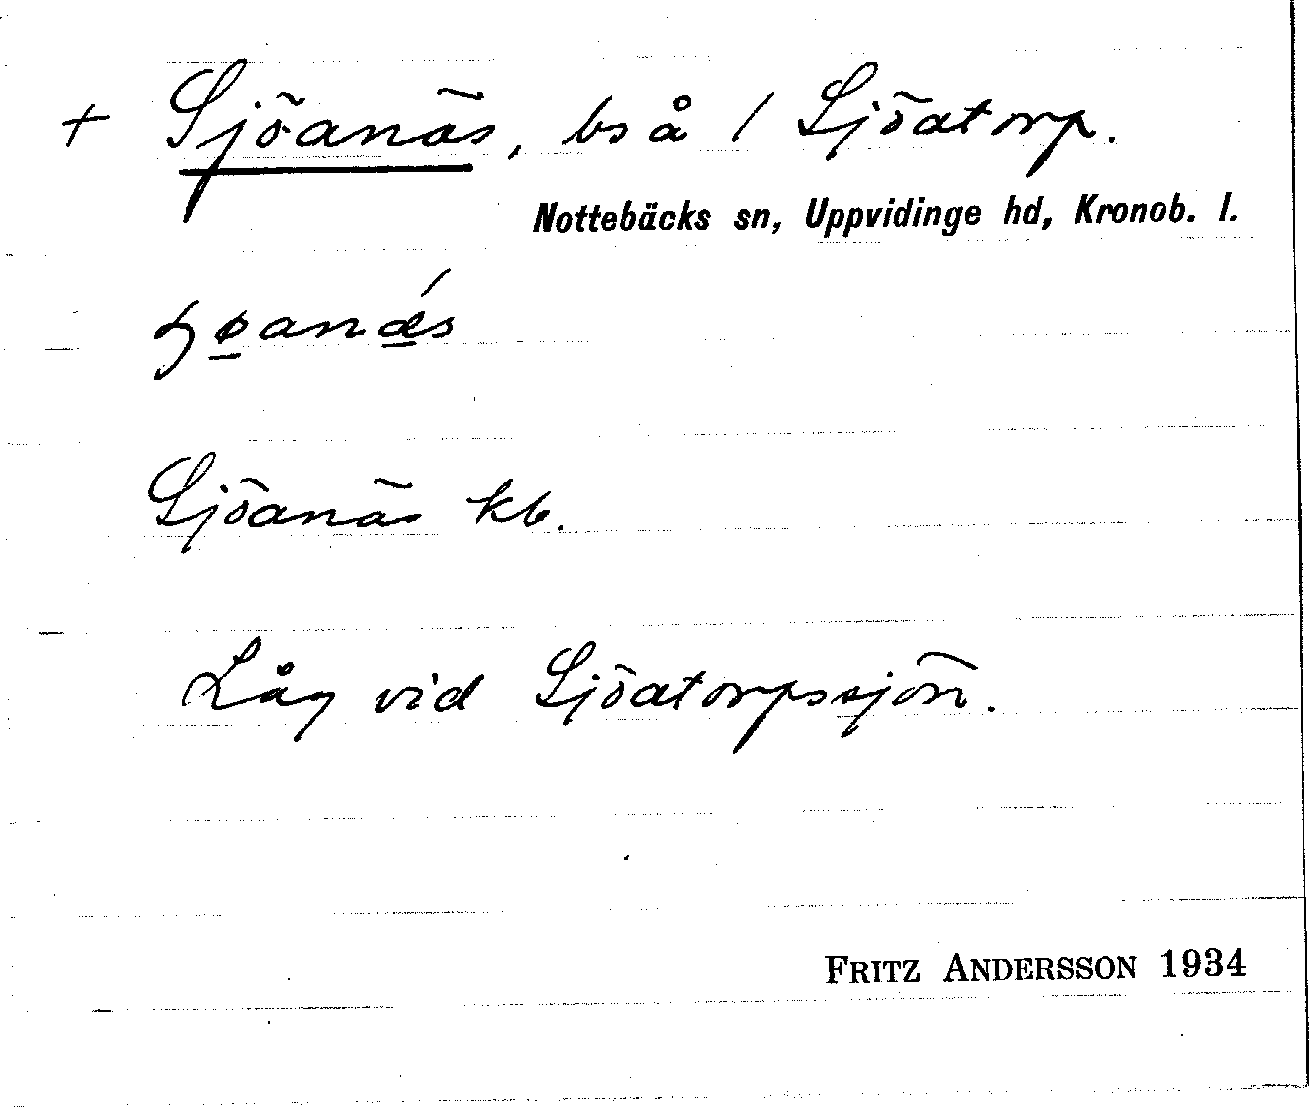 + Sjöanäs, bs å / Sjöatorp.
Nottebäcks sn, Uppvidinge hd, Kronob. l.
Sjöanäs kb.
Låg vid Sjöatorpssjön.
FRITZ ANDERSSON 1934